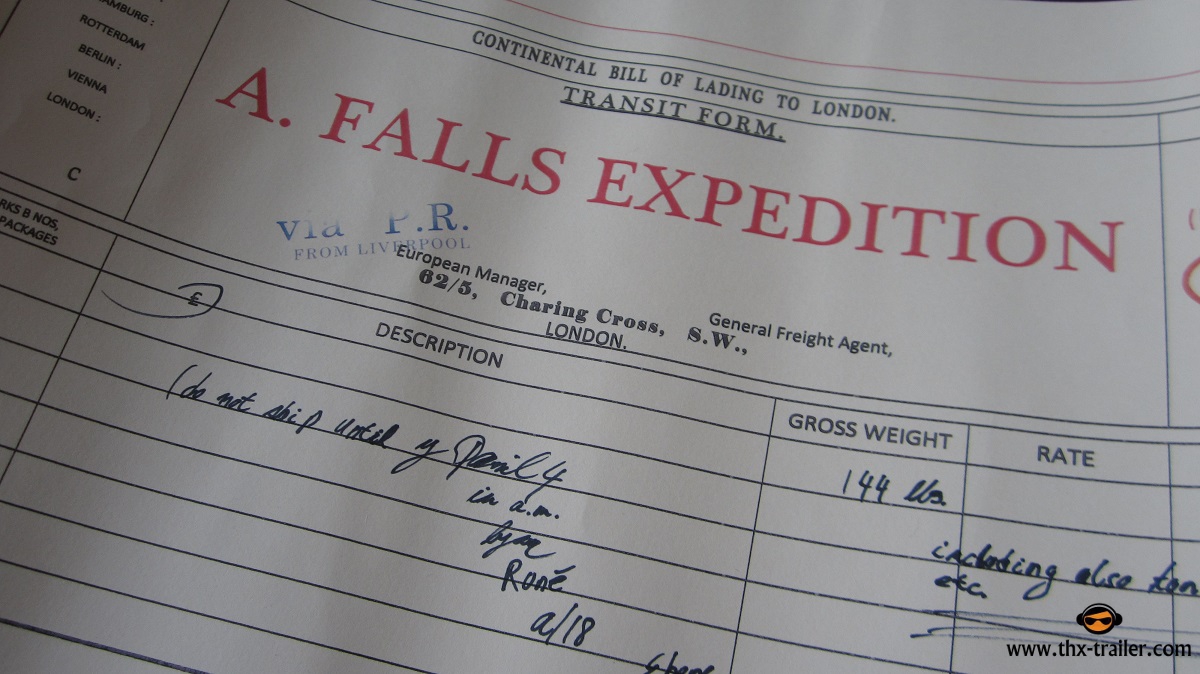 HAMBURG :
ROTTERDAM
BERLIN :
VIENNA
LONDON :
C
CONTINENTAL BILL OF LADING TO LONDON.
TRANSIT FORM.
A. FALLS EXPEDITION
via P.R.
FROM LIVERPOOL
European Manager,
62/5, Charing Cross, S.W.,
LONDON.
General Freight Agent,
RKS B NOS,
PACKAGES
£
DESCRIPTION
GROSS WEIGHT
RATE
(do not ship until
in a.m.
a/18
144 lbs
including also
etc.
www.thx-trailer.com